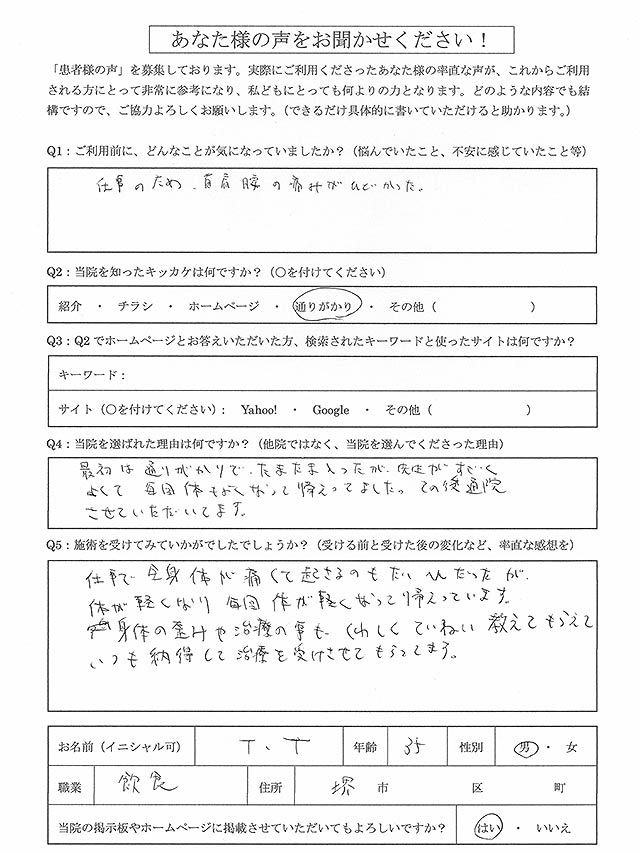 あなた様の声をお聞かせください！
「患者様の声」を募集しております。実際にご利用くださったあなた様の率直な声が、これからご利用
される方にとって非常に参考になり、私どもにとっても何よりの力となります。どのような内容でも結
構ですので、ご協力よろしくお願いします。（できるだけ具体的に書いていただけると助かります。）
Q1：ご利用前に、どんなことが気になっていましたか？（悩んでいたこと、不安に感じていたこと等）
仕事のため、首肩腰の痛みがひどかった。
Q2：当院を知ったキッカケは何ですか？（〇を付けてください）
紹介 ・ チラシ ・ ホームページ ・ 通りがかり ・ その他（ ）
Q3：Q2でホームページとお答えいただいた方、検索されたキーワードと使ったサイトは何ですか？
キーワード：
サイト（〇を付けてください）： Yahoo! ・ Google ・ その他（ ）
Q4：当院を選ばれた理由は何ですか？（他院ではなく、当院を選んでくださった理由）
最初は通りがかりで、たまたま入ったが、先生がすごく
よくて 毎回体もよくなって帰えってました。その後通院
させていただいてます。
Q5：施術を受けてみていかがでしたでしょうか？（受ける前と受けた後の変化など、率直な感想を）
仕事で全身体が痛くて起きるのもたいへんだったが、
体が軽くなり 毎回体が軽くなって帰えっています。
身体の歪みや治療の事も、くわしくていねい教えてもらえて
いつも納得して治療を受けさせてもらってます。
お名前（イニシャル可） T、T 年齢 35 性別 男 ・ 女
職業 飲食 住所 堺 市 区 町
当院の掲示板やホームページに掲載させていただいてもよろしいですか？ はい ・ いいえ